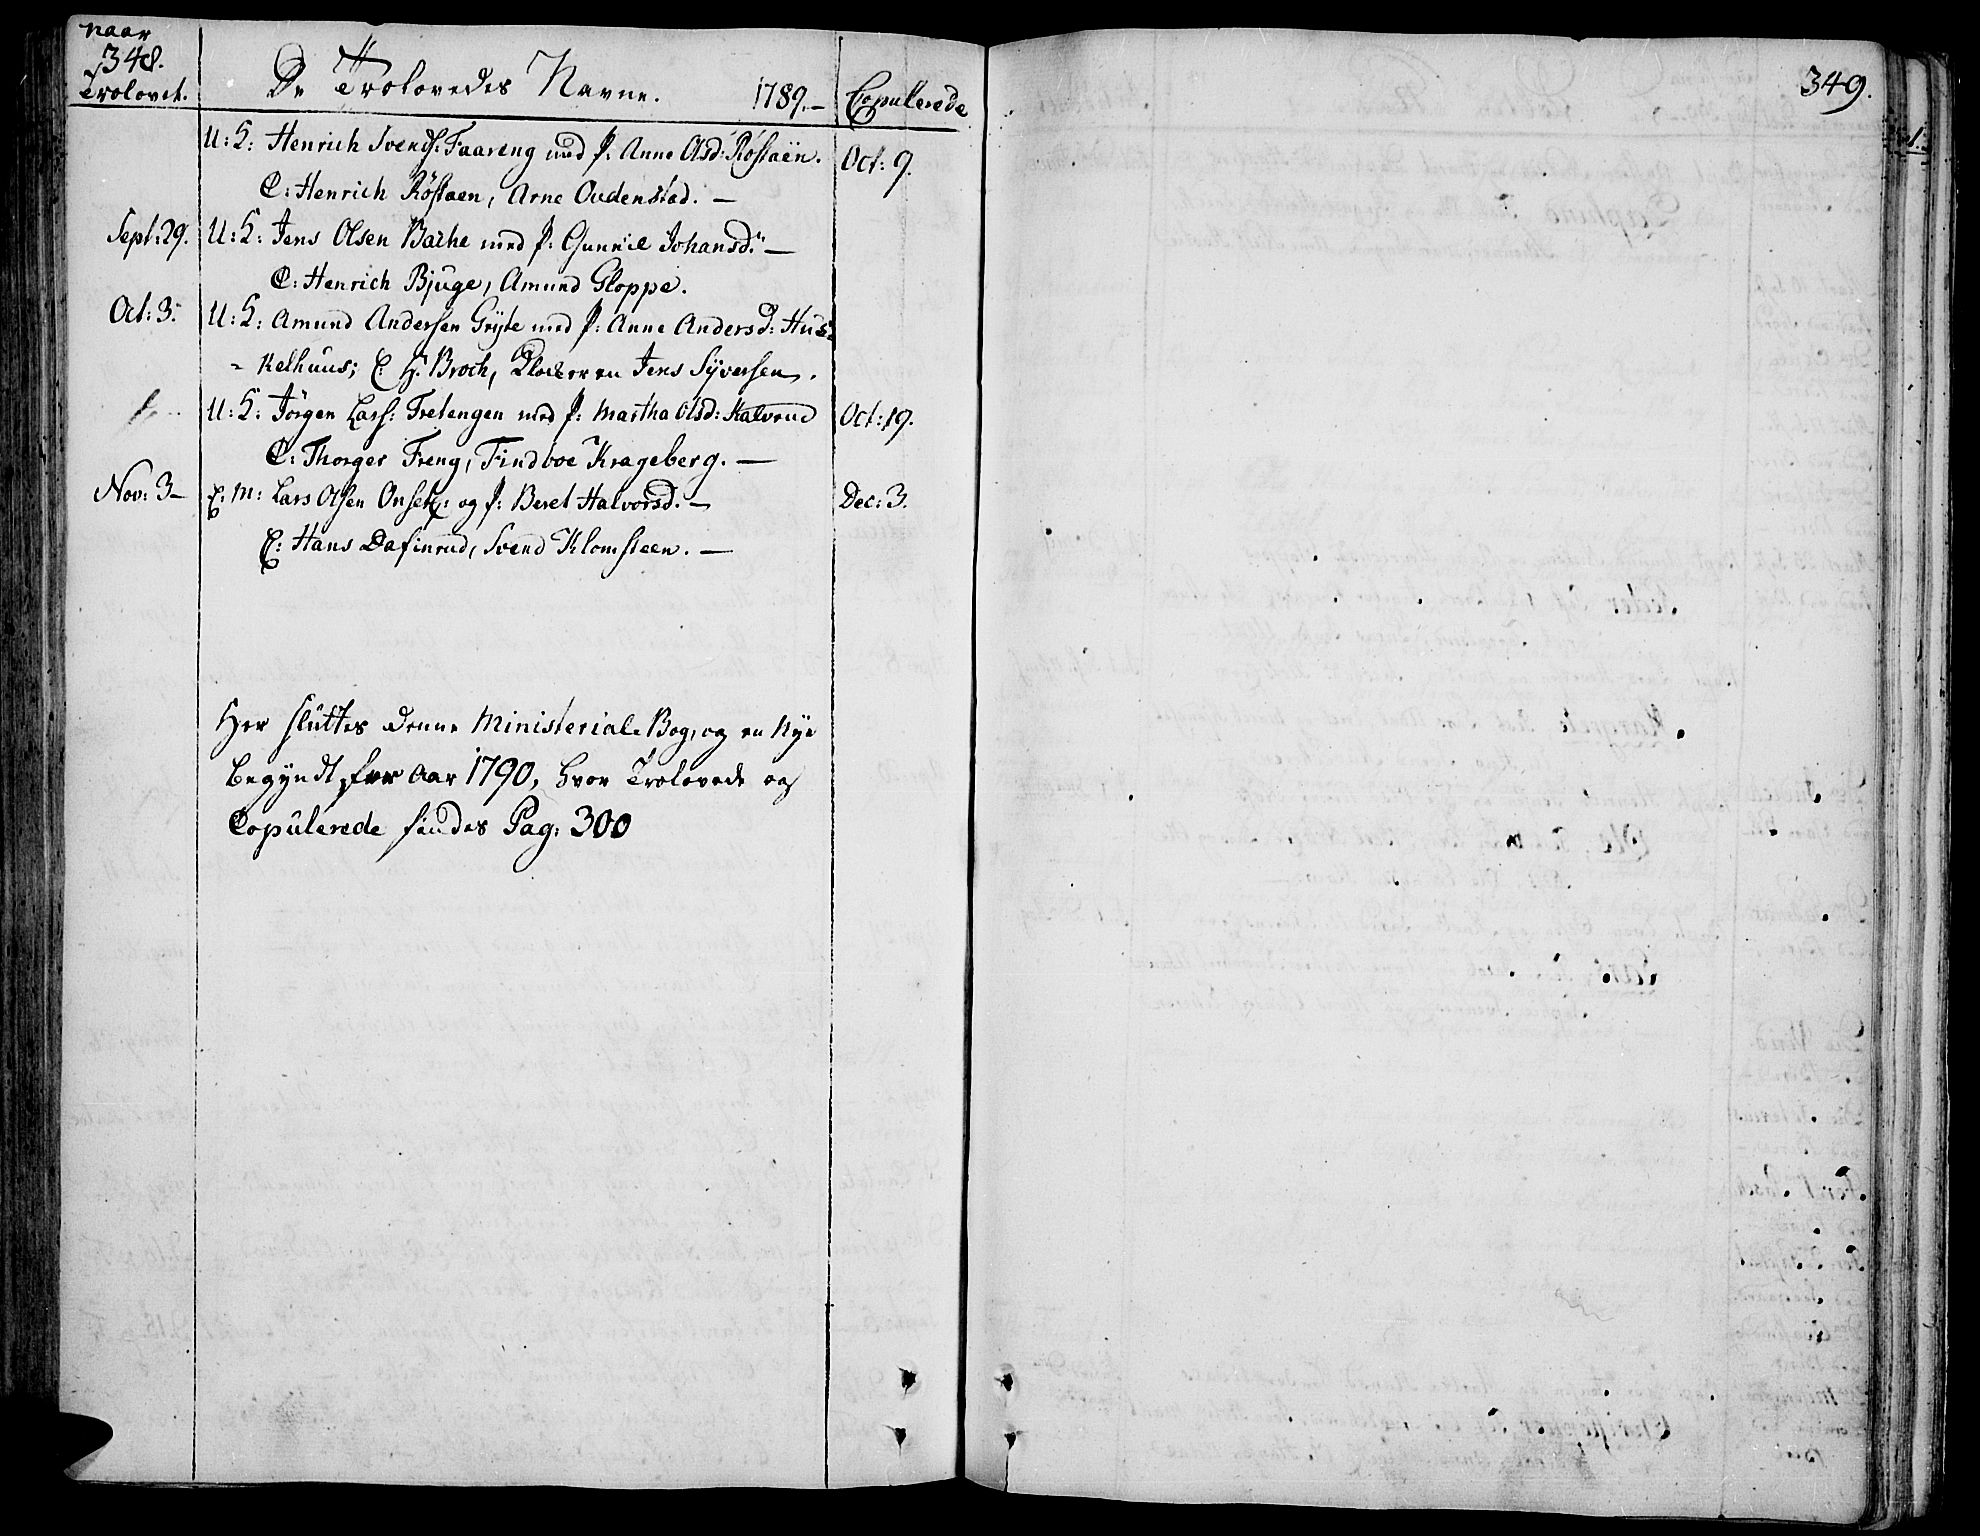 naar
348.
Trolovet.
De Trolovedes Navne. 1789.— Copulerede
U: K: Henrich Svends: Faareng med P: Anne Olsd: Röstaën. Oct: 9.
C: Henrich Röstaen, Arne Oudenstad. —
Sept: 29. U: K: Jens Olsen Bache med P: Gunnil Johansd: —
C: Henrich Bjuge, Amund Gloppe.
Oct: 3. U: K: Amund Andersen Gryte med P: Anne Andersd: Hus-
-kelhuus; C: H. Broch, Klockeren Jens Syversen.
U: K: Jörgen Lars: Tretengen med P: Martha Olsd: Kalvrud Oct: 19.
C: Thorger Freng, Tindvoe Krageberg. —
Nov: 3— E: M: Lars Olsen og P: Beret Halvorsd. — Dec: 3.
C: Hans Dafinrud, Svend Klomsteen. —
Her sluttes denne Ministerial-Bog, og en Nye
begyndt for Aar 1790, hvor Trolovede og
Copulerede findes Pag: 300
349.